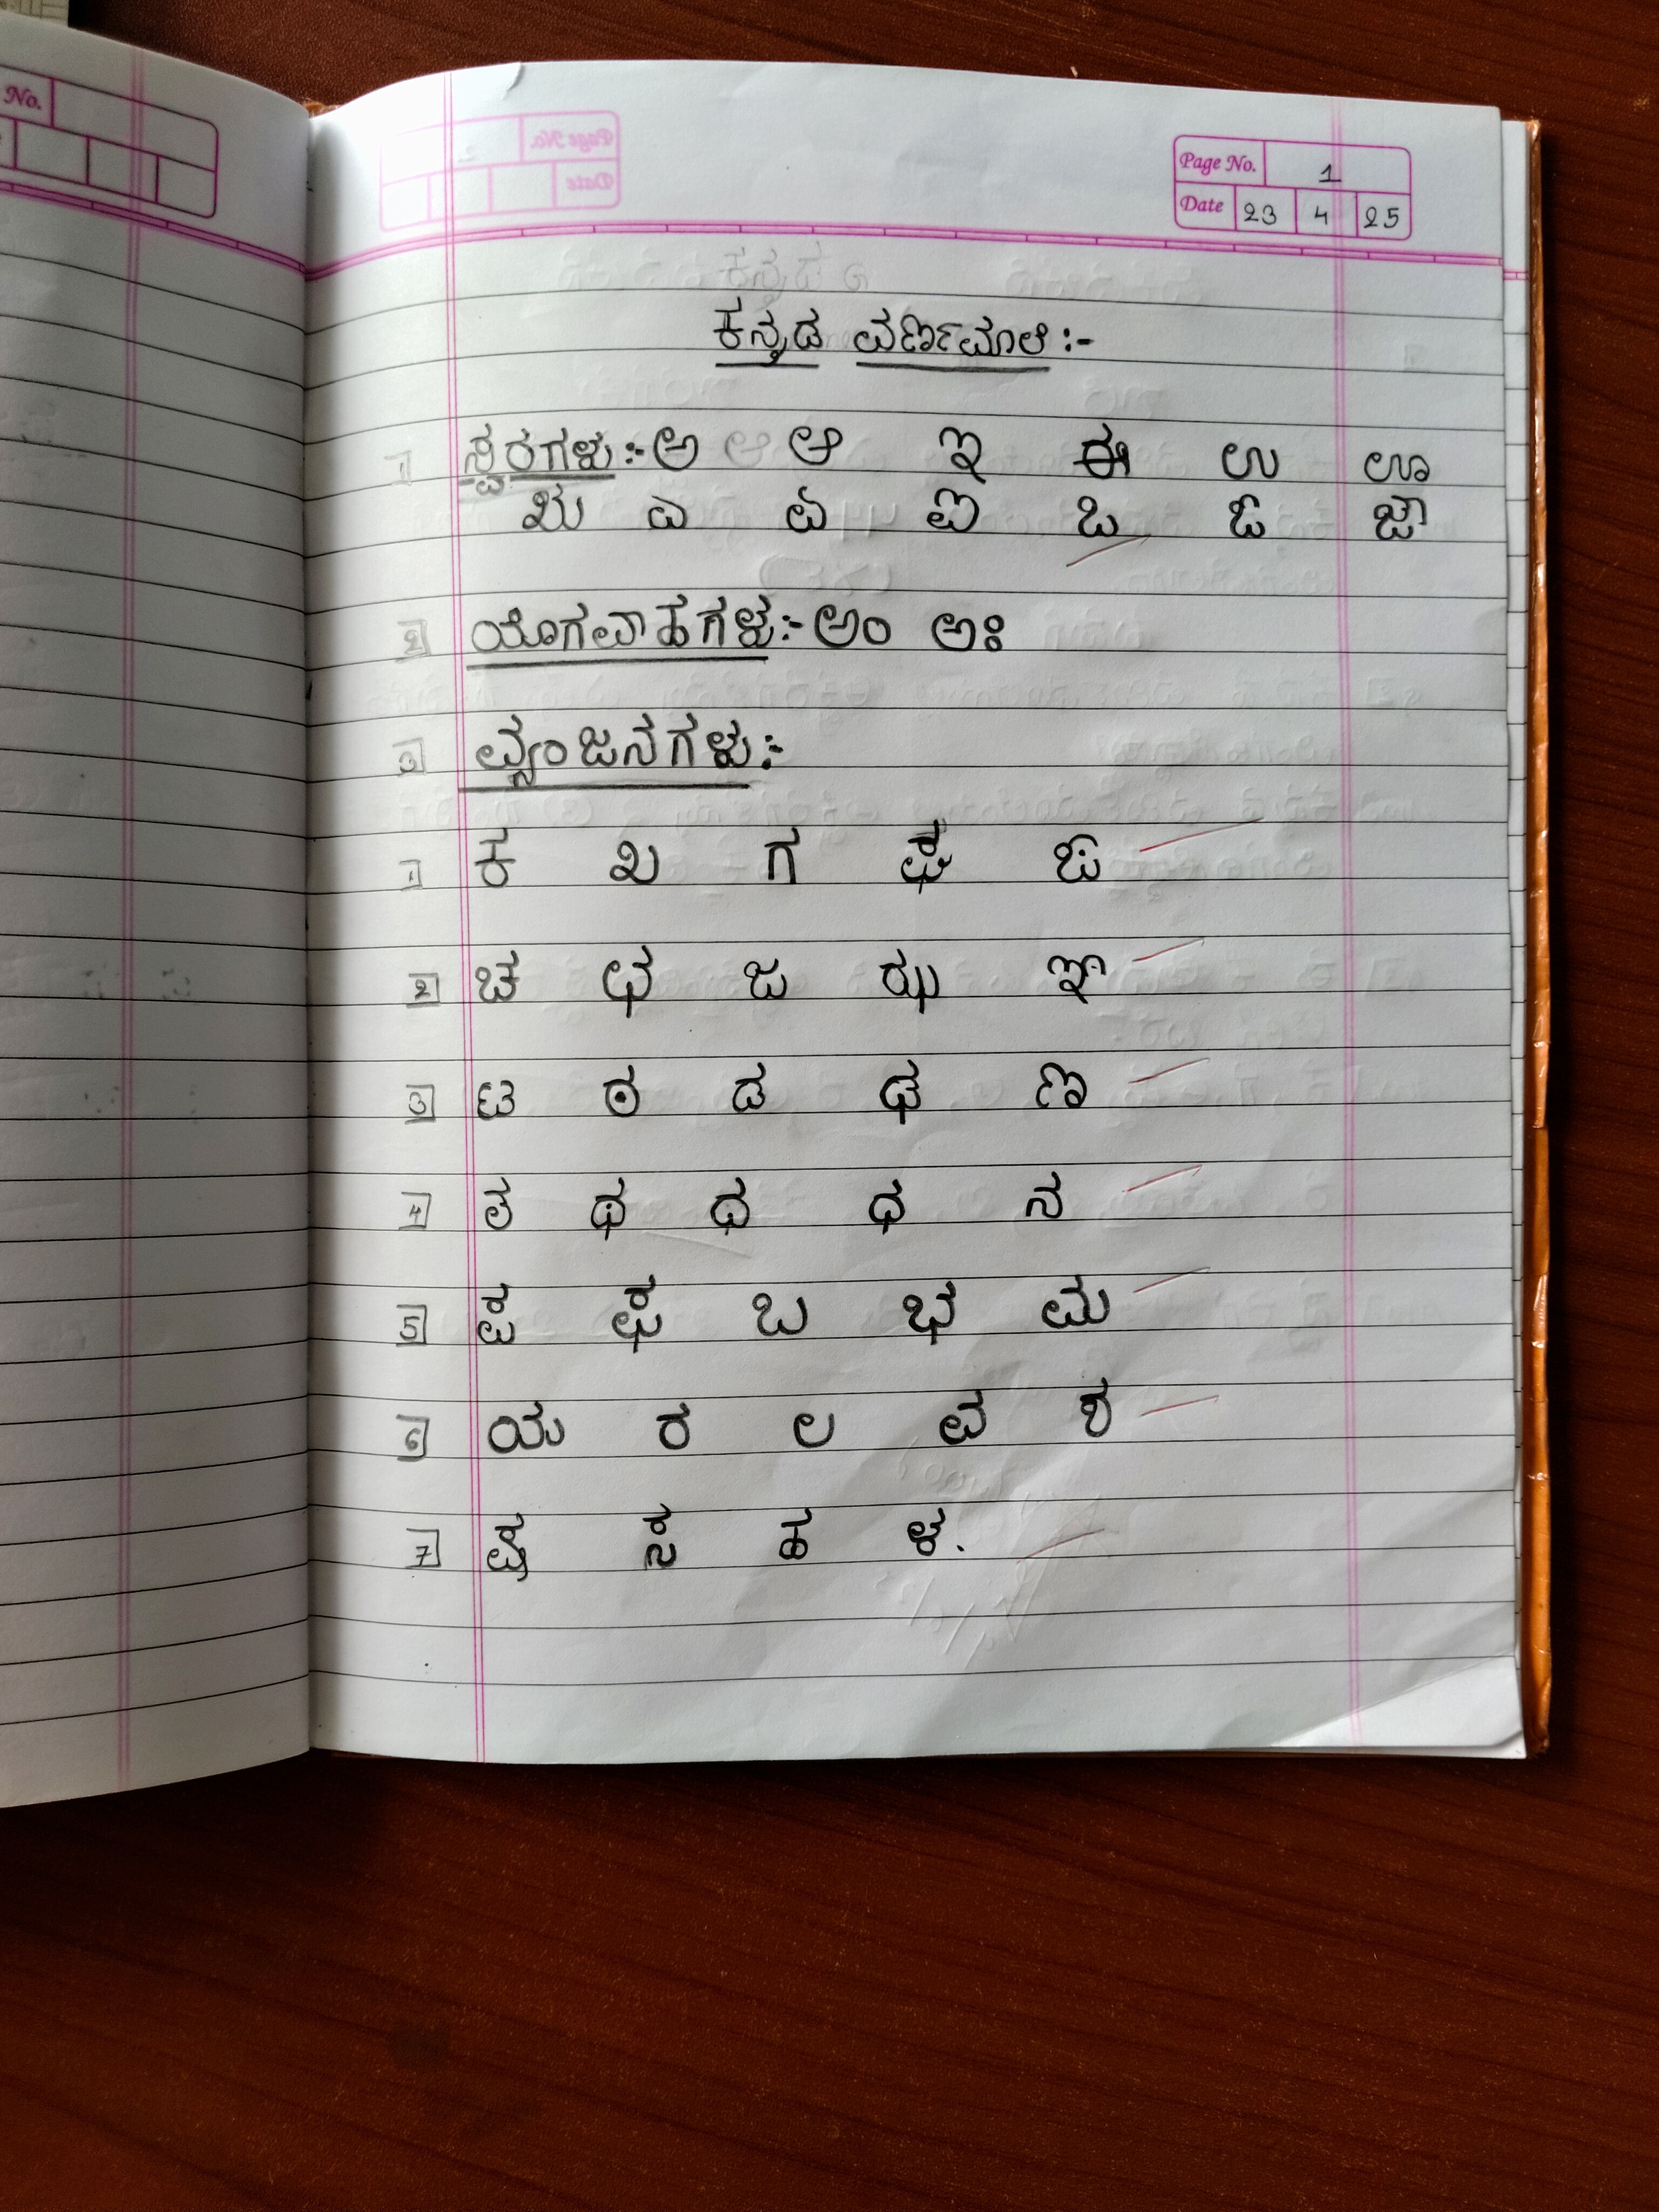 No.
Page No. 1
Date 23 4 25
ಕನ್ನಡ ವರ್ಣಮಾಲೆ :-
1 ಸ್ವರಗಳು :- ಅ ಆ ಇ ಈ ಉ ಊ
ಋ ಎ ಏ ಐ ಒ ಓ ಔ
2 ಯೋಗವಾಹಗಳು :- ಅಂ ಅಃ
3 ವ್ಯಂಜನಗಳು :-
1 ಕ ಖ ಗ ಘ ಙ
2 ಚ ಛ ಜ ಝ ಞ
3 ಟ ಠ ಡ ಢ ಣ
4 ತ ಥ ದ ಧ ನ
5 ಪ ಫ ಬ ಭ ಮ
6 ಯ ರ ಲ ವ ಶ
7 ಷ ಸ ಹ ಳ.